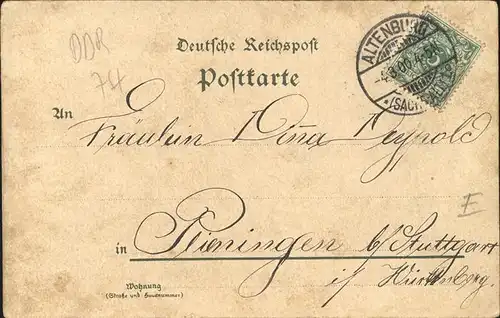 DDR
74
Deutsche Reichspost
Postkarte
ALTENBURG
An
Fräulein Dina Leypold
E
in Plieningen b/Stuttgart
i/ Württemberg.
Wohnung
(Straße und Hausnummer)